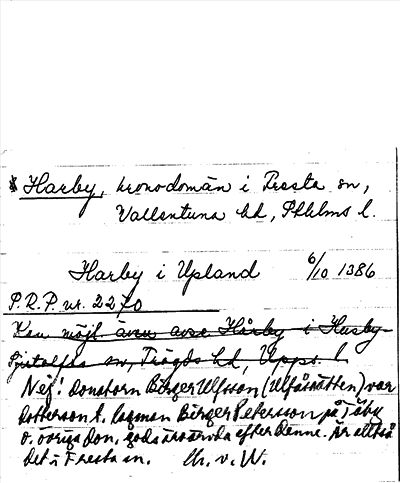 * Harby, kronodomän i Fresta sn,
Vallentuna hd, Sthlms l.
Harby i Upland 6/10 1386
P.R.P. nr. 2270
Kan möjl. även avse Hårby i Husby-
Sjutolfts sn, Trögds hd, Upps. l.
Nej! Donatorn Birger Ulfsson (Ulfåsätten) var
dotterson t. lagman Birger Petersson på Täby
o. övriga don. gods är ärvda efter denne. Är alltså
det i Fresta sn. M. v. W.